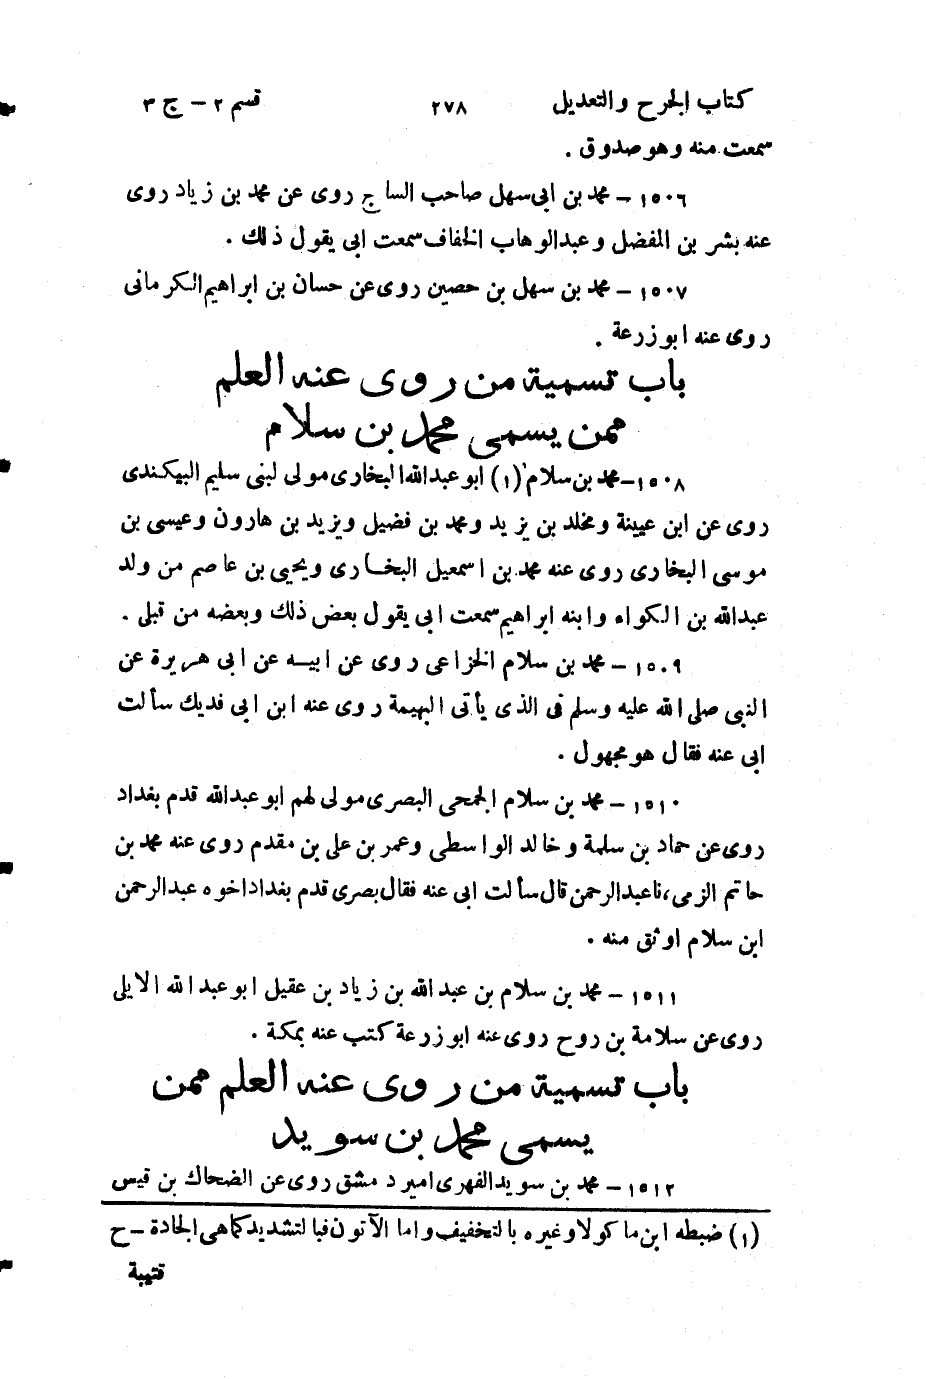 كتاب الجرح والتعديل ٢٧٨ قسم ٢ – ج ٣
سمعت منه وهو صدوق .
١٥٠٦ – محمد بن ابى سهل صاحب الساج روى عن محمد بن زياد روى
عنه بشر بن المفضل وعبد الوهاب الخفاف سمعت ابى يقول ذلك .
١٥٠٧ – محمد بن سهل بن حصين روى عن حسان بن ابراهيم الكرمانى
روى عنه ابو زرعة .
باب تسمية من روى عنه العلم
ممن يسمى محمد بن سلام
١٥٠٨ – محمد بن سلام (١) ابو عبد الله البخارى مولى لبنى سليم البيكندى
روى عن ابن عيينة ومخلد بن يزيد ومحمد بن فضيل ويزيد بن هارون وعيسى بن
موسى البخارى روى عنه محمد بن اسمعيل البخارى ويحيى بن عاصم من ولد
عبد الله بن الكواء وابنه ابراهيم سمعت ابى يقول بعض ذلك وبعضه من قبلى .
١٥٠٩ – محمد بن سلام الخزاعى روى عن ابيه عن ابى هريرة عن
النبى صلى الله عليه وسلم فى الذى يأتى البهيمة روى عنه ابن ابى فديك سألت
ابى عنه فقال هو مجهول .
١٥١٠ – محمد بن سلام الجمحى البصرى مولى لهم ابو عبد الله قدم بغداد
روى عن حماد بن سلمة وخالد الواسطى وعمر بن على بن مقدم روى عنه محمد بن
حاتم الزمى، نا عبد الرحمن قال سألت ابى عنه فقال بصرى قدم بغداد اخوه عبد الرحمن
ابن سلام اوثق منه .
١٥١١ – محمد بن سلام بن عبد الله بن زياد بن عقيل ابو عبد الله الايلى
روى عن سلامة بن روح روى عنه ابو زرعة كتب عنه بمكة .
باب تسمية من روى عنه العلم ممن
يسمى محمد بن سويد
١٥١٢ – محمد بن سويد الفهرى امير دمشق روى عن الضحاك بن قيس
(١) ضبطه ابن ماكولا وغيره بالتخفيف واما الآتون فبالتشديد كما هى الجادة – ح
قتيبة